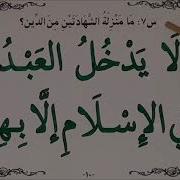 س٧: مَا مَنْزِلَةُ الشَّهَادَتَيْنِ مِنَ الدِّينِ؟
لَا يَدْخُلُ العَبْدُ
فِي الإِسْلَامِ إِلَّا بِهِ
-١٠-